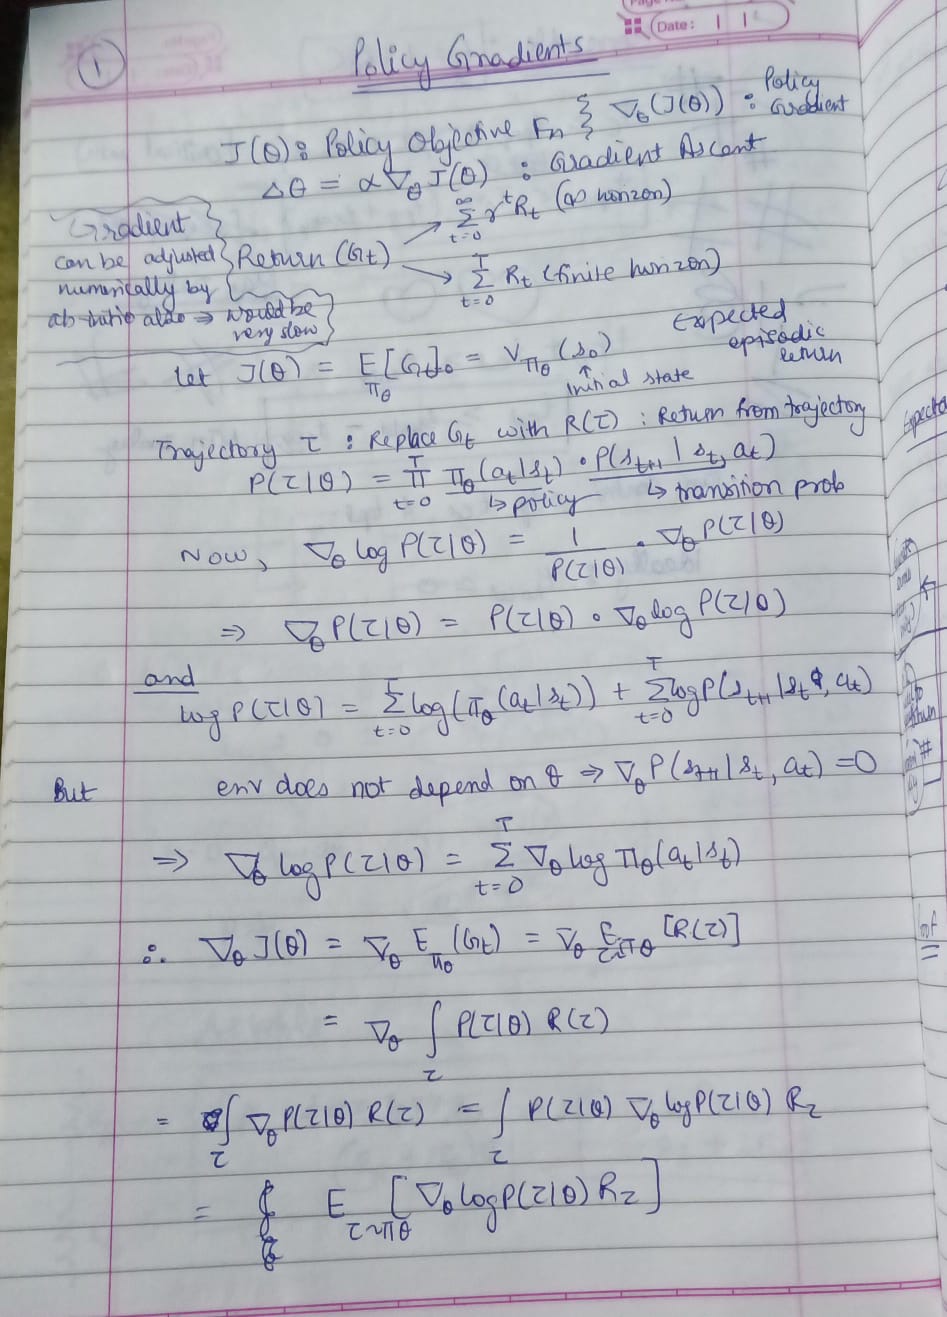 Date: | |
①
Policy Gradients
J(θ): Policy Objective Fn } ∇θ(J(θ)) : Policy Gradient
Δθ = α∇θ J(θ) : Gradient Ascent
Gradient can be adjusted numerically by ab-initio also ⇒ would be very slow
Return (Gt) → ∞Σt=0 γ^t Rt (∞ horizon)
→ TΣt=0 Rt (finite horizon)
Let J(θ) = Eπθ[Gt]0 = Vπθ(s0)
↑ initial state
Expected episodic return
Trajectory τ : Replace Gt with R(τ) : Return from trajectory
P(τ|θ) = TΠt=0 πθ(at|st) · P(st+1 | st, at)
↳ policy ↳ transition prob
Now, ∇θ log P(τ|θ) = 1/P(τ|θ) · ∇θ P(τ|θ)
⇒ ∇θ P(τ|θ) = P(τ|θ) · ∇θ log P(τ|θ)
and
log P(τ|θ) = TΣt=0 log(πθ(at|st)) + TΣt=0 log P(st+1 | st, at)
But env does not depend on θ ⇒ ∇θ P(st+1 | st, at) = 0
⇒ ∇θ log P(τ|θ) = TΣt=0 ∇θ log πθ(at|st)
∴ ∇θ J(θ) = ∇θ Eπθ(Gt) = ∇θ Eτ~πθ [R(τ)]
= ∇θ ∫τ P(τ|θ) R(τ)
= ∫τ ∇θ P(τ|θ) R(τ) = ∫τ P(τ|θ) ∇θ log P(τ|θ) Rτ
= Eτ~πθ [∇θ log P(τ|θ) Rτ]